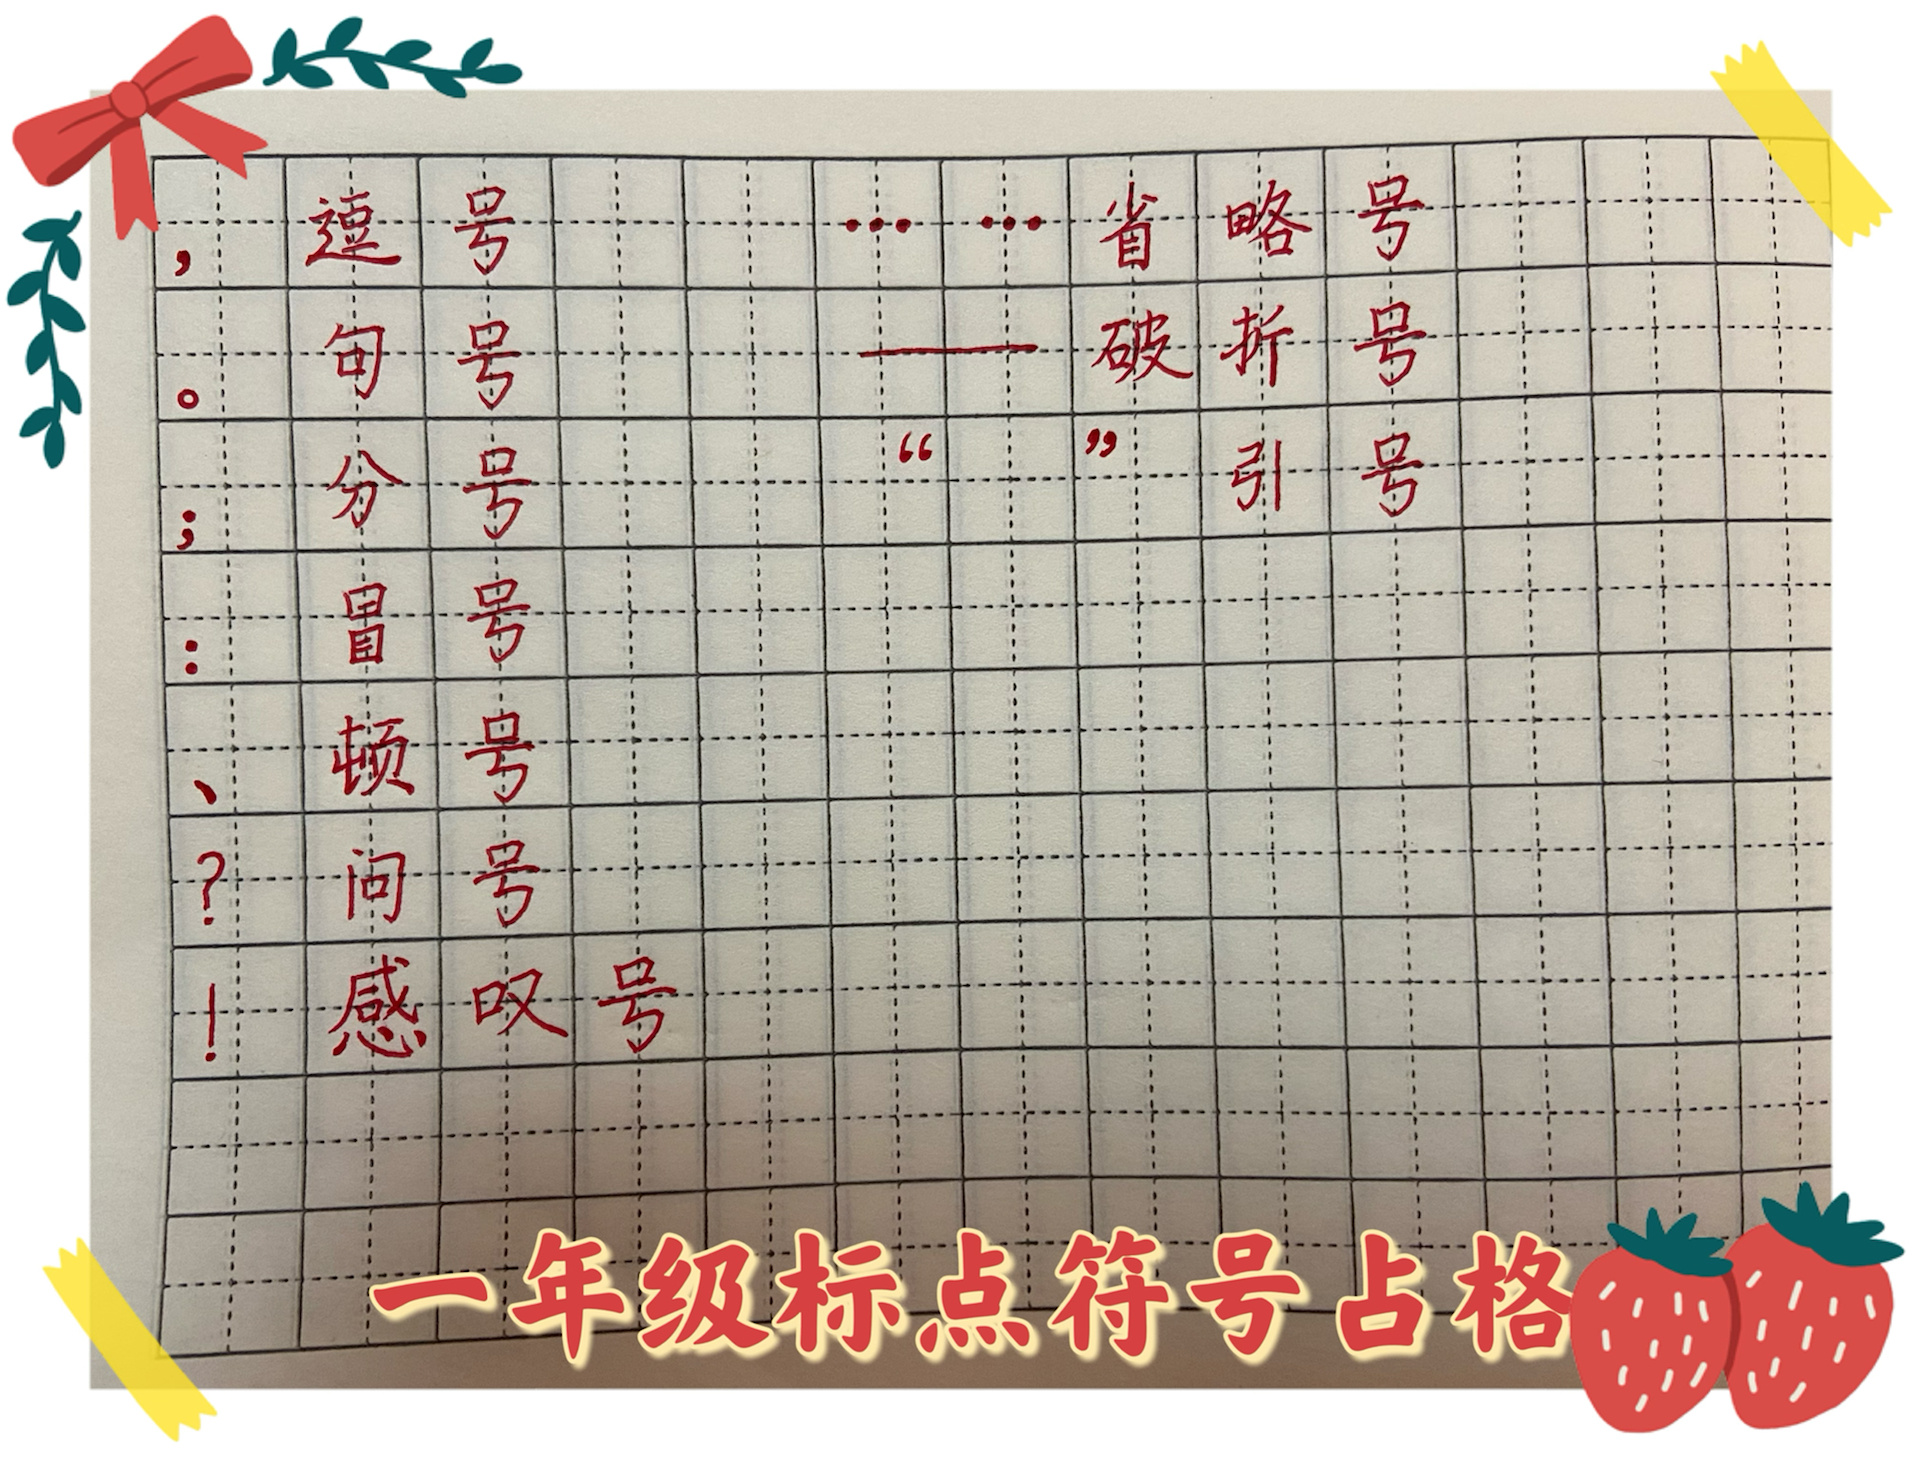 ， 逗号 …… 省略号
。 句号 —— 破折号
； 分号 “ ” 引号
： 冒号
、 顿号
？ 问号
！ 感叹号
一年级标点符号占格